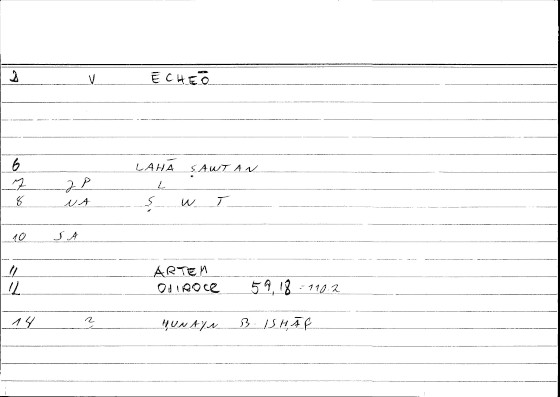 2 V ĒCHEŌ
6 LAHĀ ṢAWTAN
7 2P L
8 NA Ṣ W T
10 SA
11 ARTEM
12 ONIROCR 59,18 = 110 2
14 2 ḤUNAYN B ISḤĀQ